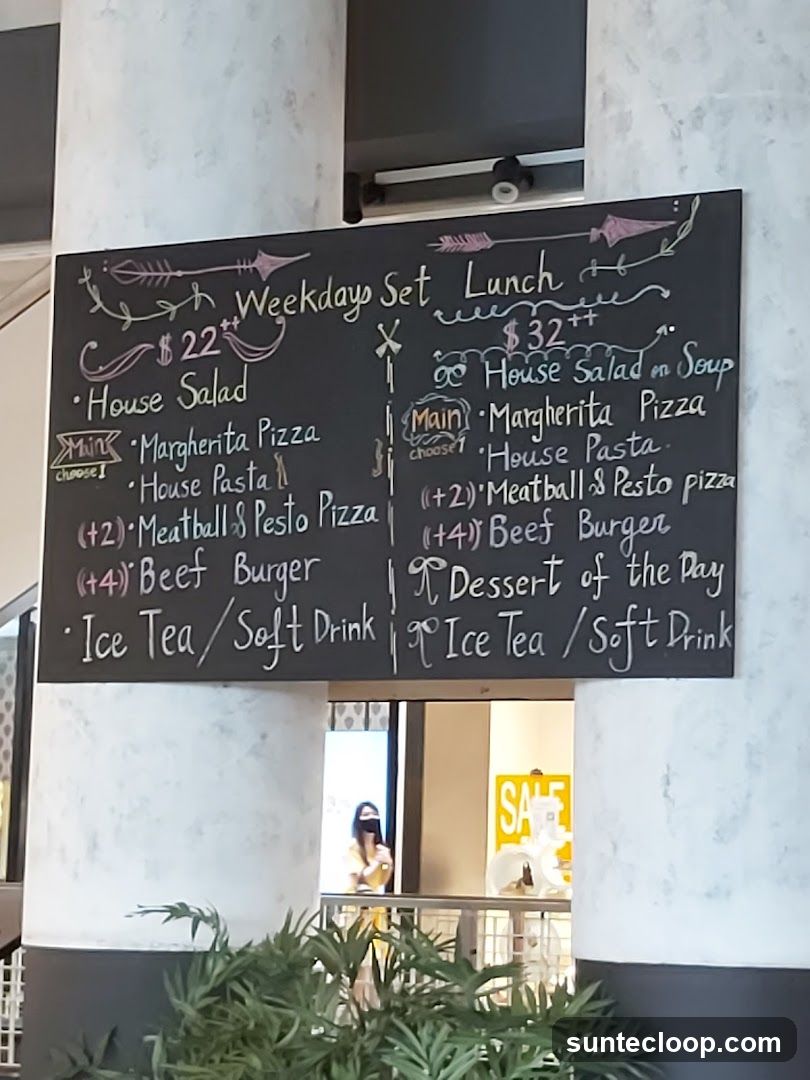 Weekdays Set Lunch
$ 22++
· House Salad
Main
choose 1
· Margherita Pizza
· House Pasta
(+2) · Meatball & Pesto Pizza
(+4) · Beef Burger
· Ice Tea / Soft Drink
$ 32++
House Salad or Soup
Main
choose 1
· Margherita Pizza
· House Pasta
(+2) · Meatball & Pesto pizza
(+4) · Beef Burger
Dessert of the Day
Ice Tea / Soft Drink
SALE
suntecloop.com